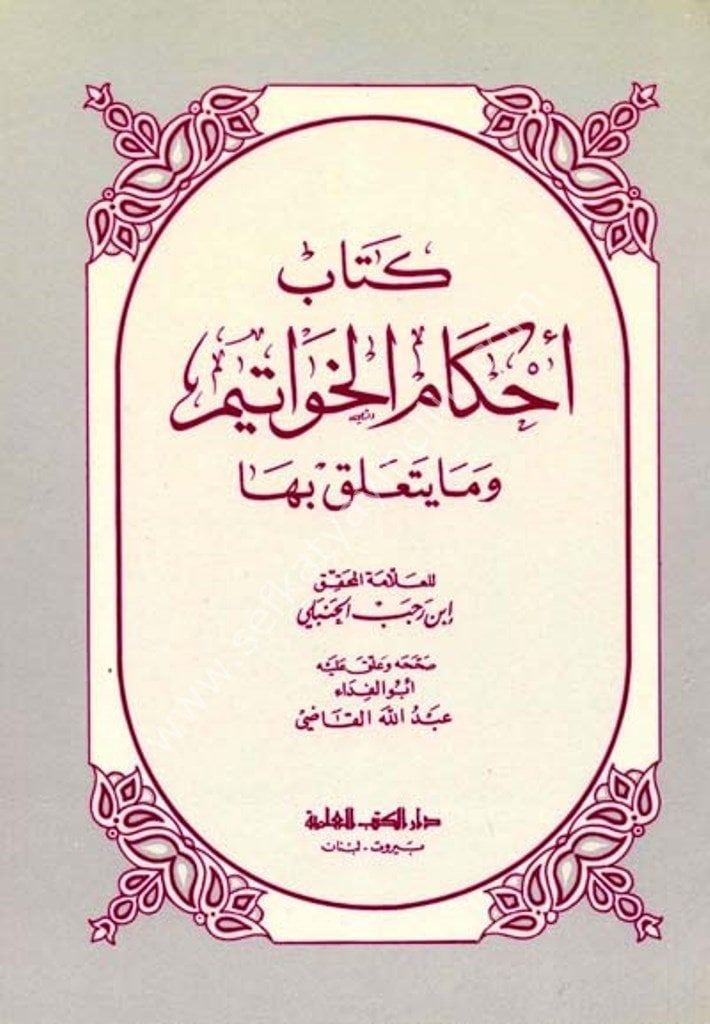 كتاب
أحكام الخواتيم
وما يتعلق بها
للعلامة المحقق
ابن رجب الحنبلي
صححه وعلق عليه
أبو الفداء
عبد الله القاضي
دار الكتب العلمية
بيروت - لبنان
www.sefkatyayincilik.com